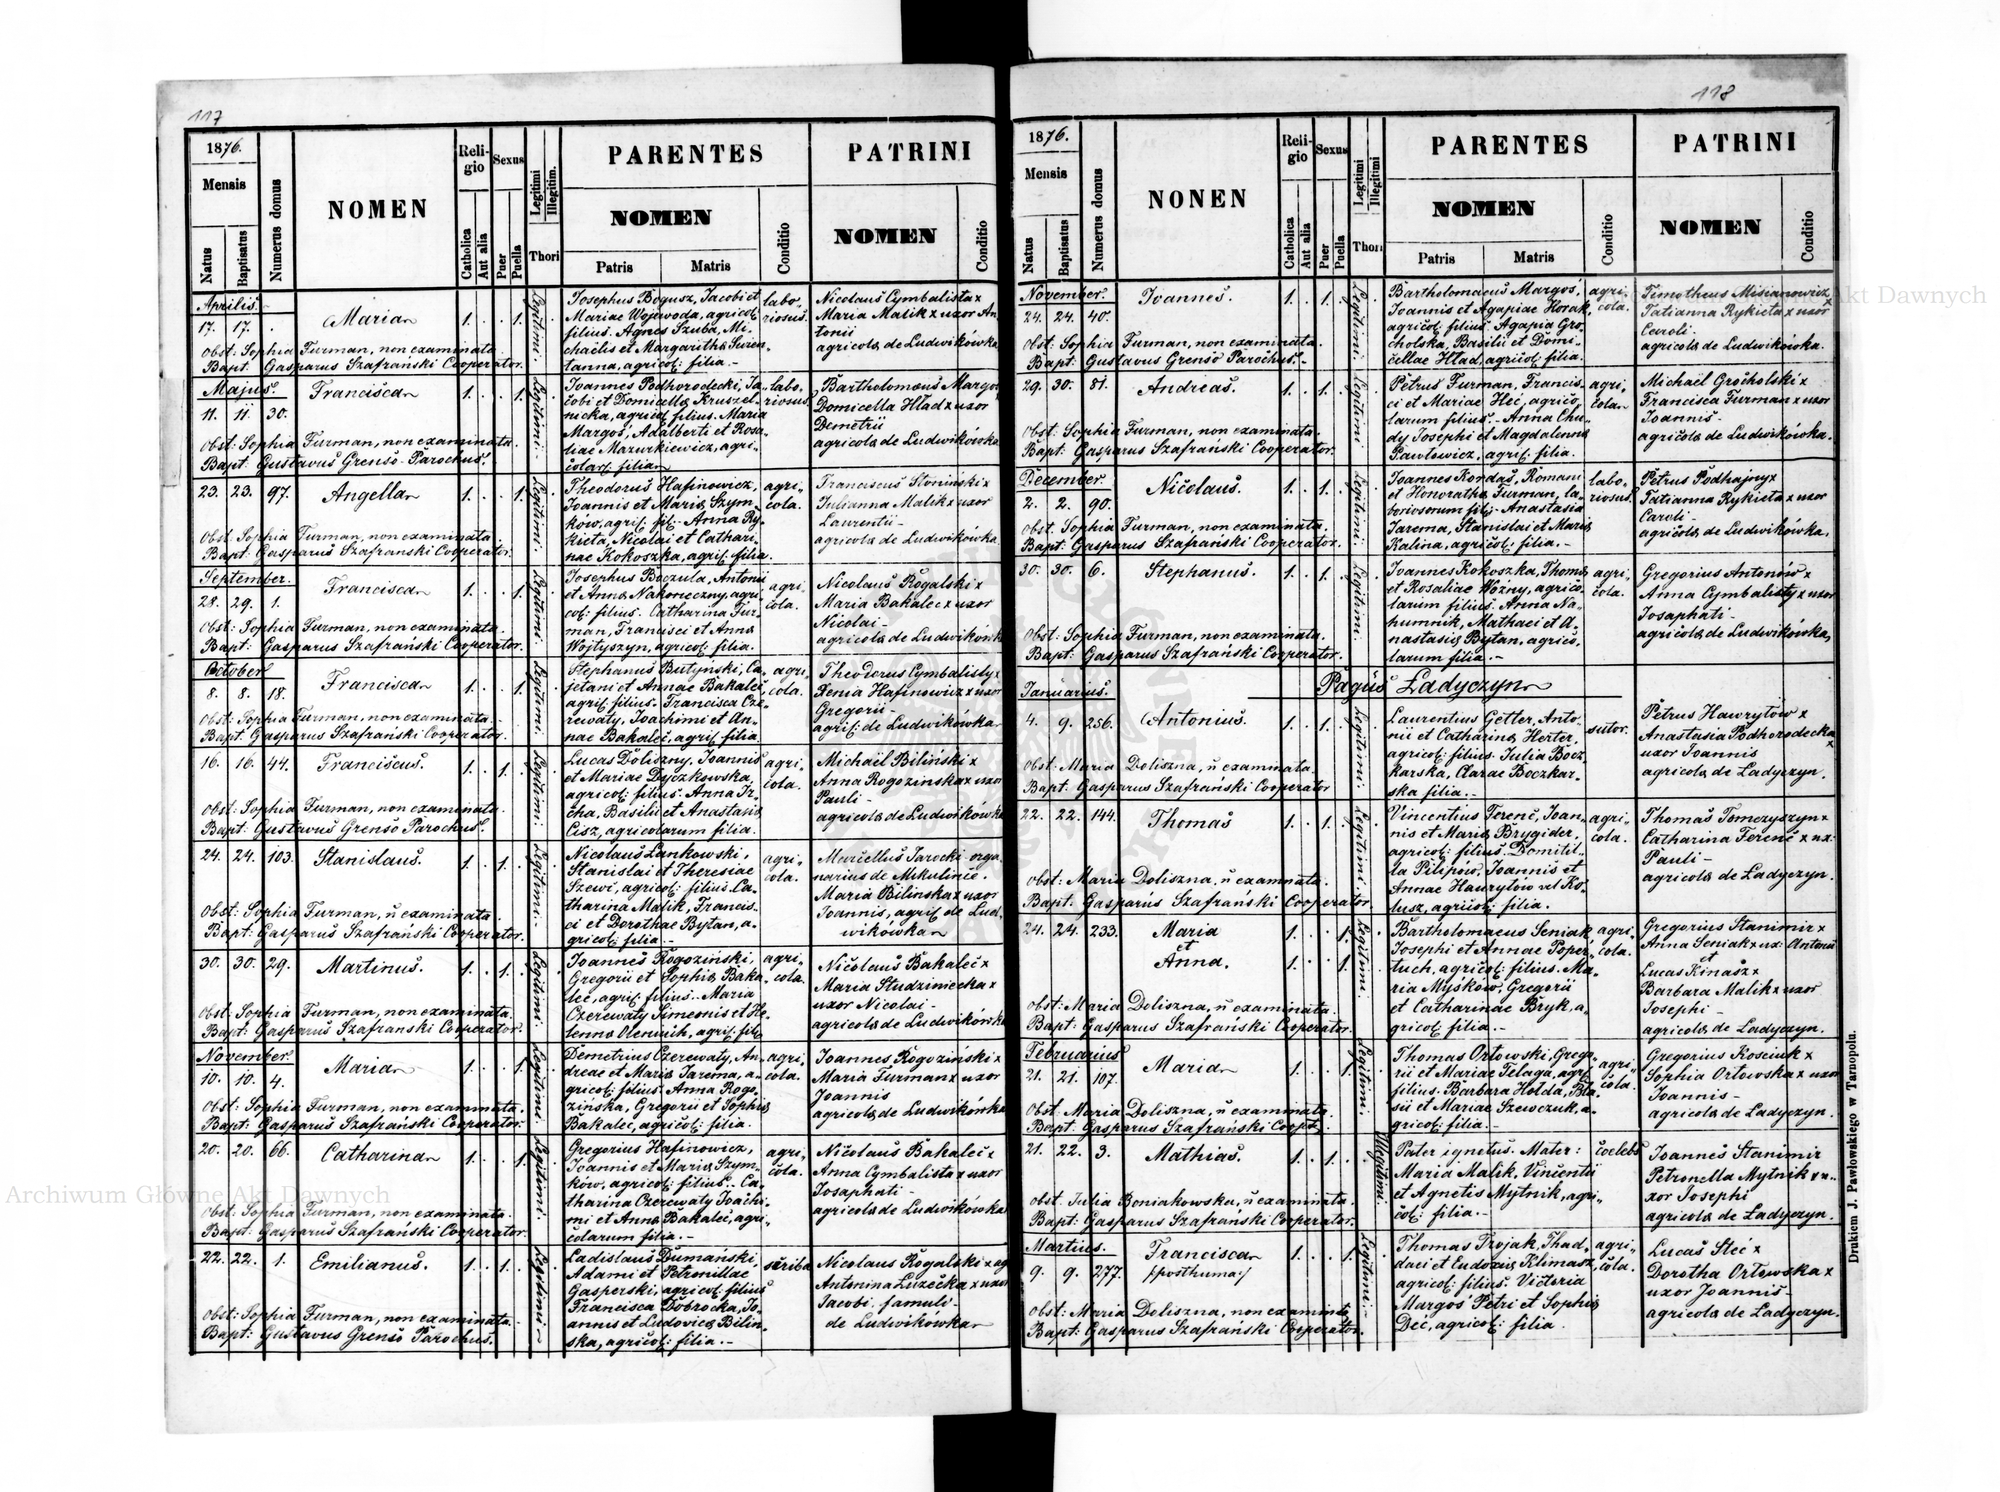 117
1876.
Mensis
Natus
Baptisatus
Numerus domus
NOMEN
Religio
Catholica
Aut alia
Sexus
Puer
Puella
Legitimi
Illegitim.
Thori
PARENTES
NOMEN
Patris
Matris
Conditio
PATRINI
NOMEN
Conditio
Aprilis.
17. 17. Maria 1. 1. Legitimi.
Josephus Bogusz, Jacobi et
Mariae Wojewoda, agricol.
filius. Agnes Szuba, Mi-
chaëlis et Margaritha
agricol: filia.-
labo-
riosus.
Nicolaus Cymbalista x
Maria Malik x uxor An-
tonii
agricolæ de Ludwikówka
Obst: Sophia Furman, non examinata
Bapt. Gasparus Szafrański Cooperator.
Majus.
11. 11. 30. Francisca 1. 1. Legitimi.
Joannes Podhorodecki, Ja-
cobi et Domicella Kruszel-
nicka, agricol. filius. Maria
Margoś, Adalberti et Rosa-
liae Mazurkiewicz, agri-
colar. filia
labo-
riosus.
Bartholomæus Margoś
Domicella Hład x uxor
Demetrii
agricolæ de Ludwikówka
Obst: Sophia Furman, non examinata.
Bapt: Gustavus Grenso Parochus.
23. 23. 97. Angella 1. 1. Legitimi.
Theodorus Hafinowicz,
Joannis et Maria Szym-
ków, agric. fil. Anna Ry-
kieta, Nicolai et Cathari-
nae Kokoszka, agric. filia.
agri-
cola.
Franciscus Słoninski x
Julianna Malik x uxor
Laurentii -
agricolæ de Ludwikówka
Obst: Sophia Furman, non examinata.
Bapt: Gasparus Szafranski Cooperator.
September.
28. 29. 1. Francisca 1. 1. Legitimi.
Josephus Boczula, Antonii
et Anna Nakoneczny, agri-
col: filius. Catharina Fur-
man, Francisci et Anna
Wojtyszyn, agricol. filia.
agri-
cola.
Nicolaus Rogalski x
Maria Bakalec x uxor
Nicolai -
agricolæ de Ludwikówk
Obst: Sophia Furman, non examinata.
Bapt: Gasparus Szafrański Cooperator.
October
8. 8. 18. Francisca 1. 1. Legitimi.
Stephanus Butyński, Ca-
jetani et Annae Bakalec,
agric. filius. Francisca Cze-
rewaty, Joachimi et An-
nae Bakalec, agric. filia
agri-
cola.
Theodorus Cymbalisty x
Xenia Hafinowicz x uxor
Gregorii -
agric. de Ludwikówka
Obst: Sophia Furman, non examinata.
Bapt: Gasparus Szafrański Cooperator.
16. 16. 44. Franciscus. 1. 1. Legitimi.
Lucas Doliszny, Joannis
et Mariae Dyczkowska,
agricol: filius. Anna
Basilii et Anastasiæ
Cisz, agricolarum filia.
agri-
cola.
Michaël Biliński x
Anna Rogozinska x uxor
Pauli -
agricolæ de Ludwikówk
Obst: Sophia Furman, non examinata.
Bapt: Gustavus Grenso Parochus.
24. 24. 103. Stanislaus. 1. 1. Legitimi.
Nicolaus Lankowski,
Stanislai et Theresiae
Szewc, agricol: filius. Ca-
tharina Malik, Francis-
ci et Dorothae Bytan, a-
gricol: filia.-
agri-
cola.
Marcellus Jarocki orga-
narius de Mikulinie.
Maria Bilinska x uxor
Joannis, agric. de Lud-
wikówka
Obst: Sophia Furman, n examinata
Bapt: Gasparus Szafrański Cooperator.
30. 30. 29. Martinus. 1. 1. Legitimi.
Joannes Rogozinski,
Gregorii et Sophia Baka-
lec, agric. filius. Maria
Czerewaty, Simeonis et He-
lenna agric. filia
agri-
cola.
Nicolaus Bakalec x
Maria Studziniecka x
uxor Nicolai -
agricolæ de Ludwikówk
Obst: Sophia Furman, non examinata.
Bapt: Gasparus Szafranski Cooperator.
November
10. 10. 4. Maria 1. 1. Legitimi.
Demetrius Czerewaty, An-
dreae et Maria Jarema, a-
gricol: filius. Anna Rogo-
zińska, Gregorii et Sophia
Bakalec, agricol: filia.
agri-
cola.
Joannes Rogoziński x
Maria Furman x uxor
Joannis
agricolæ de Ludwikówka
Obst: Sophia Furman, non examinata.
Bapt: Gasparus Szafrański Cooperator.
20. 20. 66. Catharina 1. 1. Legitimi.
Gregorius Hafinowicz,
Joannis et Maria Szym-
ków, agricol: filius.. Ca-
tharina Czerewaty Joachi-
mi et Anna Bakalec, agri-
colarum filia.-
agri-
cola.
Nicolaus Bakalec x
Anna Cymbalista x uxor
Josaphati -
agricolæ de Ludwikówka
Obst: Sophia Furman, non examinata.
Bapt: Gasparus Szafrański Cooperator.
22. 22. 1. Emilianus. 1. 1. Legitimi
Ladislaus Dumański,
Adami et Petronillae
Gasperski, agricol: filius
Francisca Dobrocka, Jo-
annis et Ludovica Bilin-
ska, agricol: filia.-
scriba
Nicolaus Rogalski x ag
Antonina x uxor
Jacobi, famuli -
de Ludwikówka
Obst: Sophia Furman, non examinata.
Bapt: Gustavus Grenso Parochus.
118
1876.
Mensis
Natus
Baptisatus
Numerus domus
NONEN
Religio
Catholica
Aut alia
Sexus
Puer
Puella
Legitimi
Illegitimi
Thori
PARENTES
NOMEN
Patris
Matris
Conditio
PATRINI
NOMEN
Conditio
November.
24. 24. 40. Joannes. 1. 1. Legitimi.
Bartholomaeus Margoś,
Joannis et Agapiae Horak,
agricol: filius. Agapia Gro-
cholska, Basilii et Domi-
cellae Hład, agricol: filia.
agri-
cola.
Timotheus Misianowicz x
Tatianna Rykieta x uxor
Caroli -
agricolæ de Ludwikówka.
Obst: Sophia Furman, non examinata.
Bapt: Gustavus Grenso Parochus.-
29. 30. 81. Andreas. 1. 1. Legitimi.
Petrus Furman, Francis-
ci et Mariae Hec, agrico-
larum filius.- Anna Chu-
dy Josephi et Magdalenna
Pawłowicz, agric. filia.
agri-
cola
Michaël Grocholski x
Francisca Furman x uxor
Joannis -
agricolæ de Ludwikówka.
Obst: Sophia Furman, non examinata.
Bapt: Gasparus Szafrański Cooperator.
December.
2. 2. 90. Nicolaus. 1. 1. Legitimi.
Joannes Kordas, Romani
et Honoratha Furman, la-
boriosorum fil: Anastasia
Jarema, Stanislai et Maria
Kalina, agricol. filia.-
labo-
riosus.
Petrus Podhajny x
Tatianna Rykieta x uxor
Caroli -
agricolæ de Ludwikówka.
Obst: Sophia Furman, non examinata.
Bapt: Gasparus Szafrański Cooperator.
30. 30. 6. Stephanus. 1. 1. Legitimi.
Joannes Kokoszka, Thoma
et Rosaliae Woźny, agrico-
larum filius. Anna Na-
humnik, Mathaei et A-
nastasia Bytan, agrico-
larum filia.-
agri-
cola.
Gregorius Antonów x
Anna Cymbalisty x uxor
Josaphati -
agricolæ de Ludwikówka,
Obst: Sophia Furman, non examinata.
Bapt: Gasparus Szafrański Cooperator.
Pagus Ładyczyn
Januarius.
4. 9. 256. Antonius. 1. 1. Legitimi.
Laurentius Getter, Anto-
nii et Catharina Herter,
agricol: filius. Julia Bocz-
karska, Clarae Boczkar-
ska filia.-
sutor.
Petrus Hawrytów x
Anastasia Podhorodecka x
uxor Joannis
agricolæ de Ładyczyn.
Obst: Maria Doliszna, n examinata.
Bapt: Gasparus Szafrański Cooperator
22. 22. 144. Thomas 1. 1. Legitimi.
Vincentius Ferenc, Joan-
nis et Maria Brygider,
agricol: filius. Domitil-
la Pilipów, Joannis et
Annae Hawrytow vel Ko-
lusz, agricol: filia.
agri-
cola.
Thomas Tomczyszyn x
Catharina Ferenc x ux:
Pauli -
agricolæ de Ładyczyn.
Obst: Maria Doliszna, n examinata.
Bapt: Gasparus Szafrański Cooperator.
24. 24. 233. Maria 1. 1. Legitimi.
et
Anna. 1. 1.
Bartholomaeus Seniak
Josephi et Annae Poper-
tuch, agricol: filius. Ma-
ria Myśków, Gregorii
et Catharinae Bryk, a-
gricol: filia.-
agri-
cola.
Gregorius Stanimir x
Anna Seniak x ux: Antonii
et
Lucas Kinasz x
Barbara Malik x uxor
Josephi -
agricolæ de Ładyczyn.
Obst: Maria Doliszna, n examinata.
Bapt: Gasparus Szafrański Cooperator.
Februarius
21. 21. 107. Maria 1. 1. Legitimi.
Thomas Orłowski, Grego-
rii et Mariae Telaga, agric
filius. Barbara Hołda, Bla-
sii et Mariae Szewczuk, a-
gricol: filia.-
agri-
cola.
Gregorius Kosciuk x
Sophia Orłowska x uxor
Joannis -
agricolæ de Ładyczyn.
Obst: Maria Doliszna, n examinata.
Bapt: Gasparus Szafrański Coopt.
21. 22. 3. Mathias. 1. 1. Illegitimi.
Pater ignotus. Mater:
Maria Malik, Vincentii
et Agnetis Mytnik, agri-
col: filia.-
coelebs
Joannes Stanimir
Petronella Mytnik x u-
xor Josephi
agricolæ de Ładyczyn.
Obst: Julia Boniakowska, n examinata.
Bapt: Gasparus Szafranski Cooperator.
Martius.
9. 9. 277. Francisca 1. 1. Legitimi.
/:posthuma:/
Thomas Trojak, Thad-
daei et Eudoxia Klimasz,
agricol: filius. Victoria
Margoś Petri et Sophia
Dec, agricol: filia.
agri-
cola.
Lucas Stec x
Dorotha Orłowska x
uxor Joannis -
agricolæ de Ładyczyn.
Obst: Maria Doliszna, non examinata
Bapt: Gasparus Szafrański Cooperator.
Drukiem J. Pawłowskiego w Tarnopolu.
Archiwum Główne Akt Dawnych